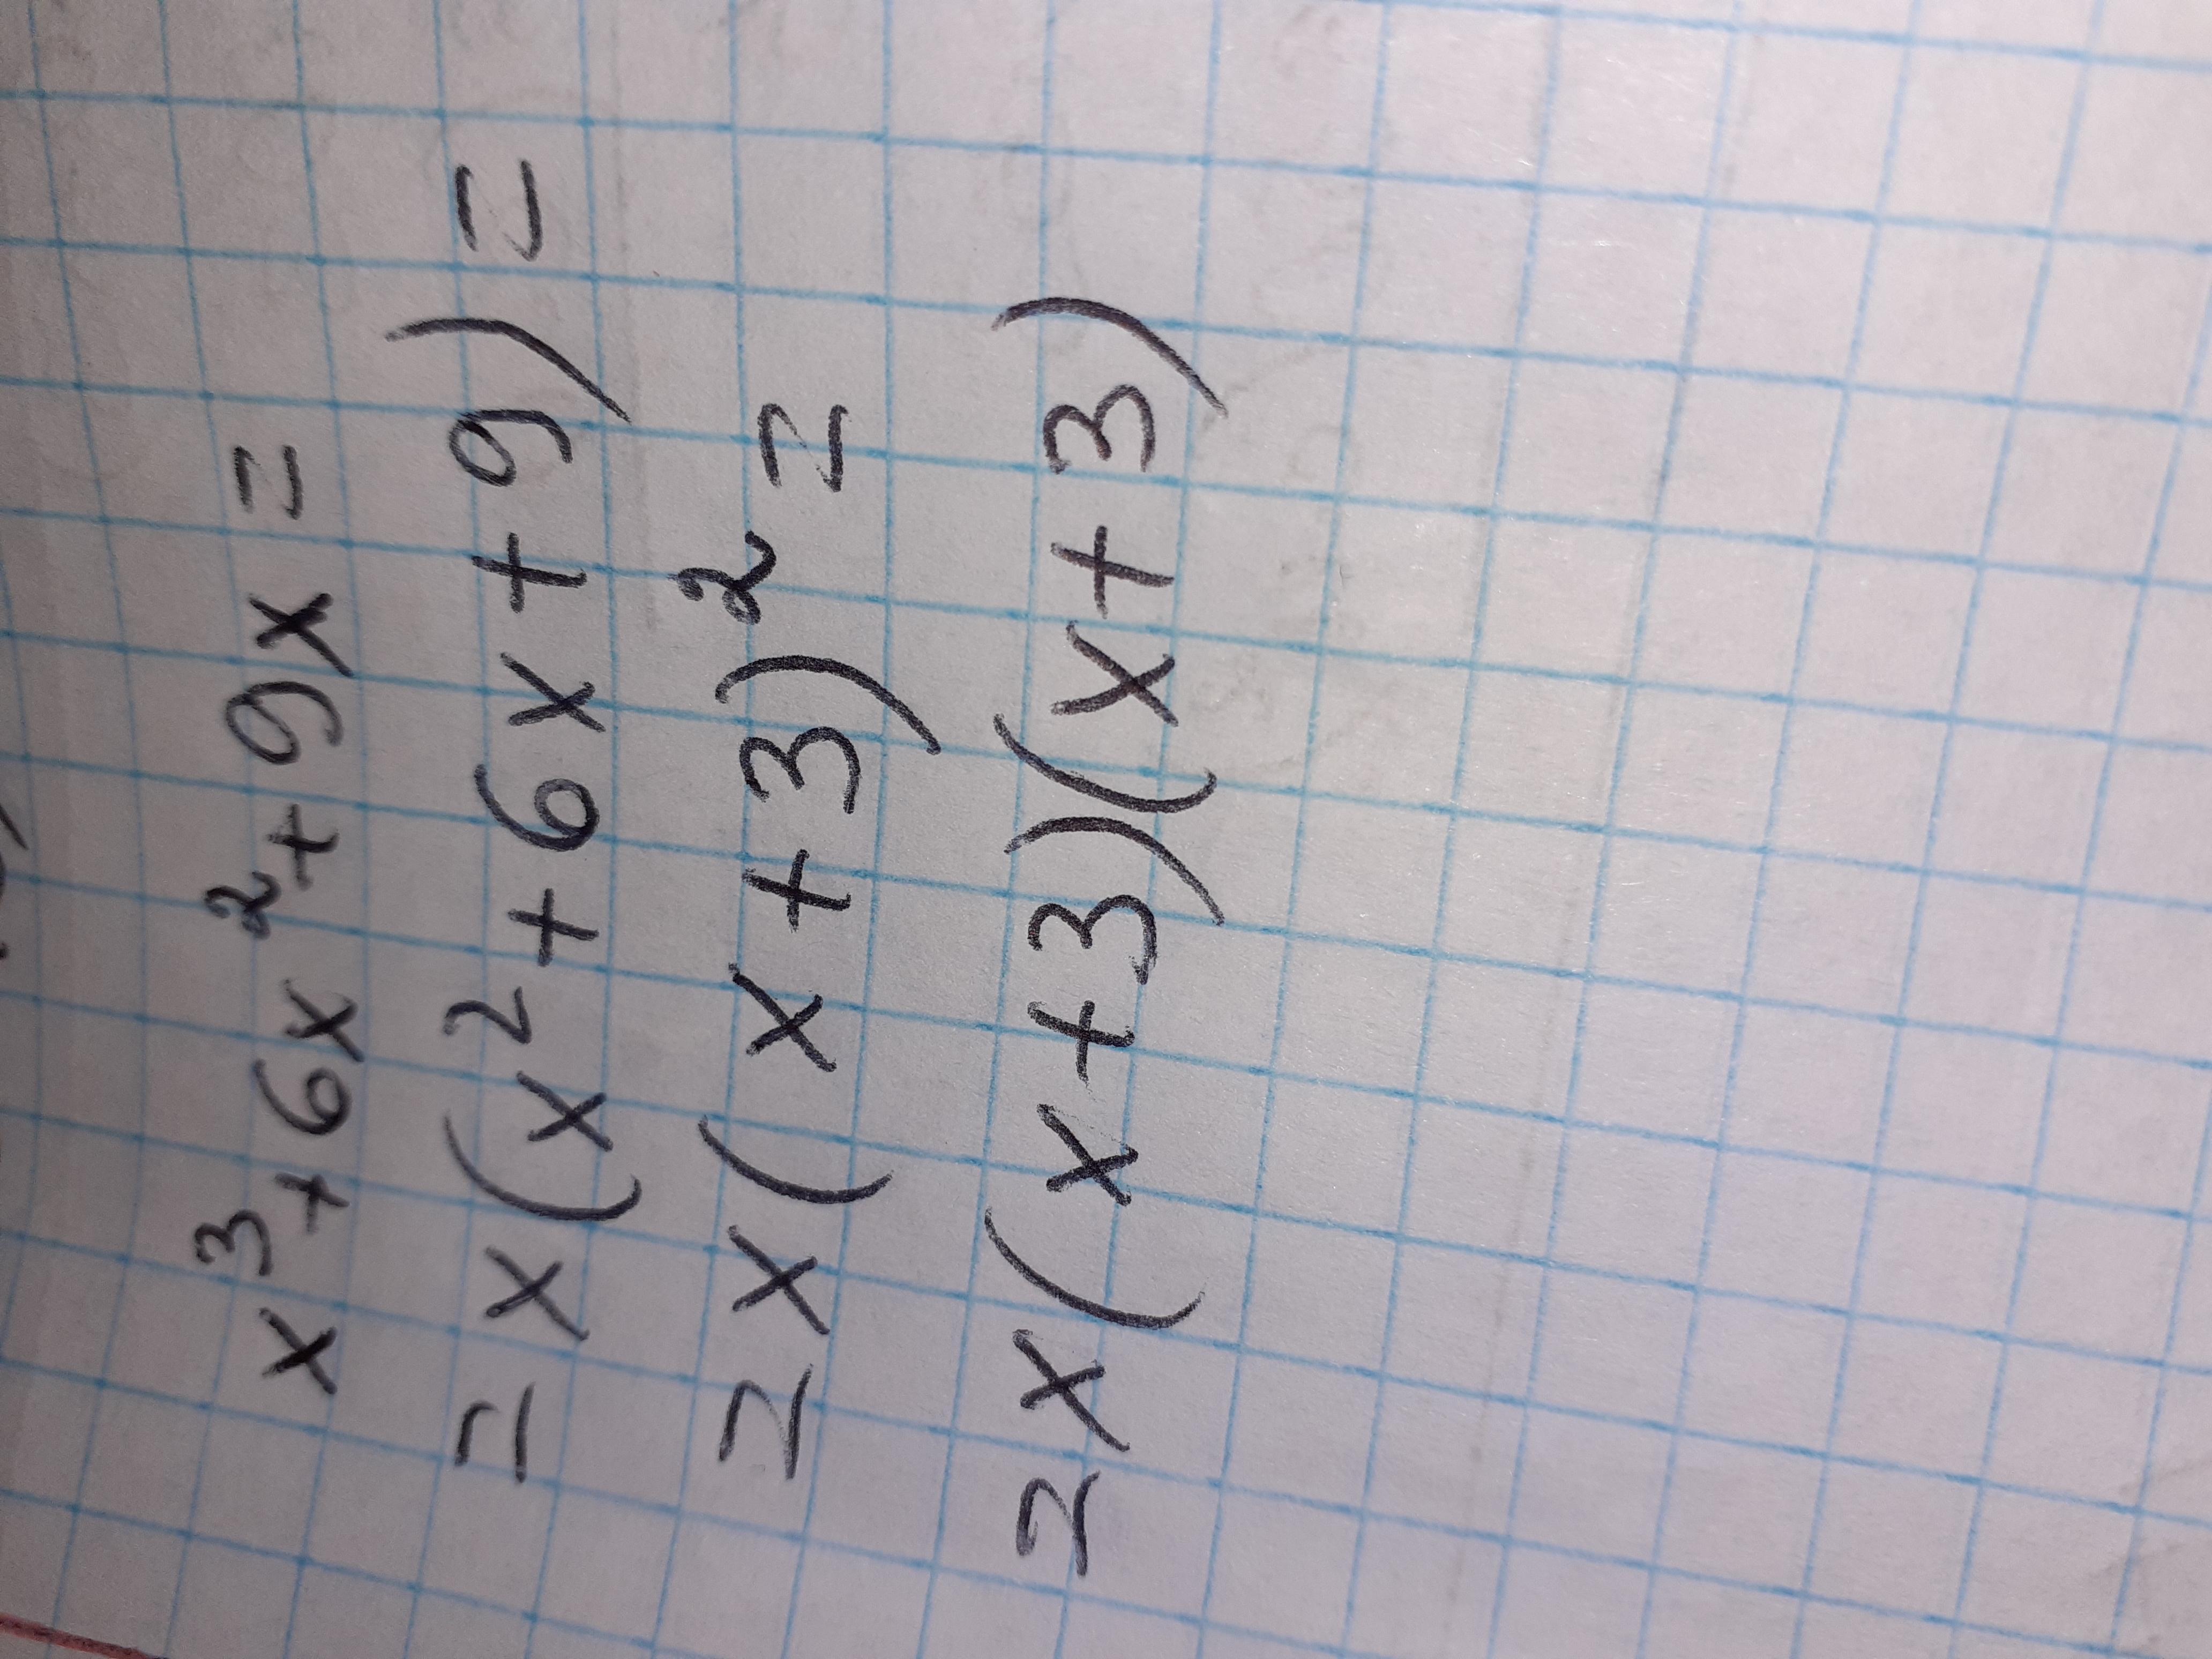 x³+6x²+9x=
=x(x²+6x+9)=
=x(x+3)²=
=x(x+3)(x+3)